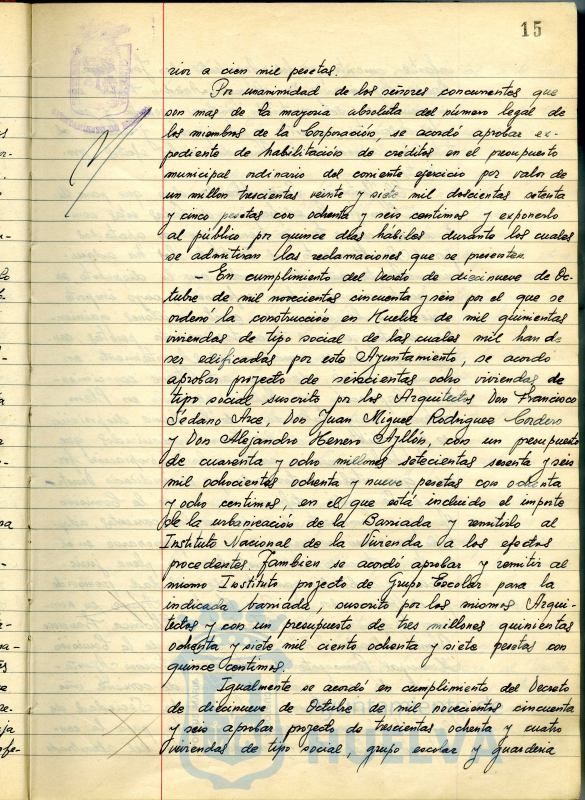 15
rior a cien mil pesetas.
Por unanimidad de los señores concurrentes que
son mas de la mayoria absoluta del número legal de
los miembros de la Corporación se acordó aprobar ex-
pediente de habilitación de créditos en el presupuesto
municipal ordinario del corriente ejercicio por valor de
un millon trescientas veinte y siete mil doscientas setenta
y cinco pesetas con ochenta y seis centimos y exponerlo
al público por quince dias hábiles durante los cuales
se admitiran las reclamaciones que se presenten.
- En cumplimiento del Decreto de diecinueve de Oc-
tubre de mil novecientos cincuenta y seis por el que se
ordenó la construcción en Huelva de mil quinientas
viviendas de tipo social de las cuales mil han de
ser edificadas por este Ayuntamiento, se acordo
aprobar proyecto de seiscientas ocho viviendas de
tipo social suscrito por los Arquitectos Don Francisco
Sedano Arce, Don Juan Miguel Rodriguez Cordero
y Don Alejandro Herrero Ayllón, con un presupuesto
de cuarenta y ocho millones setecientas sesenta y seis
mil ochocientas ochenta y nueve pesetas con ochenta
y ocho centimos, en el que está incluido el importe
de la urbanización de la Barriada y remitirlo al
Instituto Nacional de la Vivienda a los efectos
procedentes. Tambien se acordó aprobar y remitir al
mismo Instituto proyecto de Grupo Escolar para la
indicada barriada, suscrito por los mismos Arqui-
tectos y con un presupuesto de tres millones quinientas
ochenta y siete mil ciento ochenta y siete pesetas con
quince centimos.
Igualmente se acordó en cumplimiento del Decreto
de diecinueve de Octubre de mil novecientos cincuenta
y seis aprobar proyecto de trescientas ochenta y cuatro
viviendas de tipo social, grupo escolar y guarderia
HUELVA